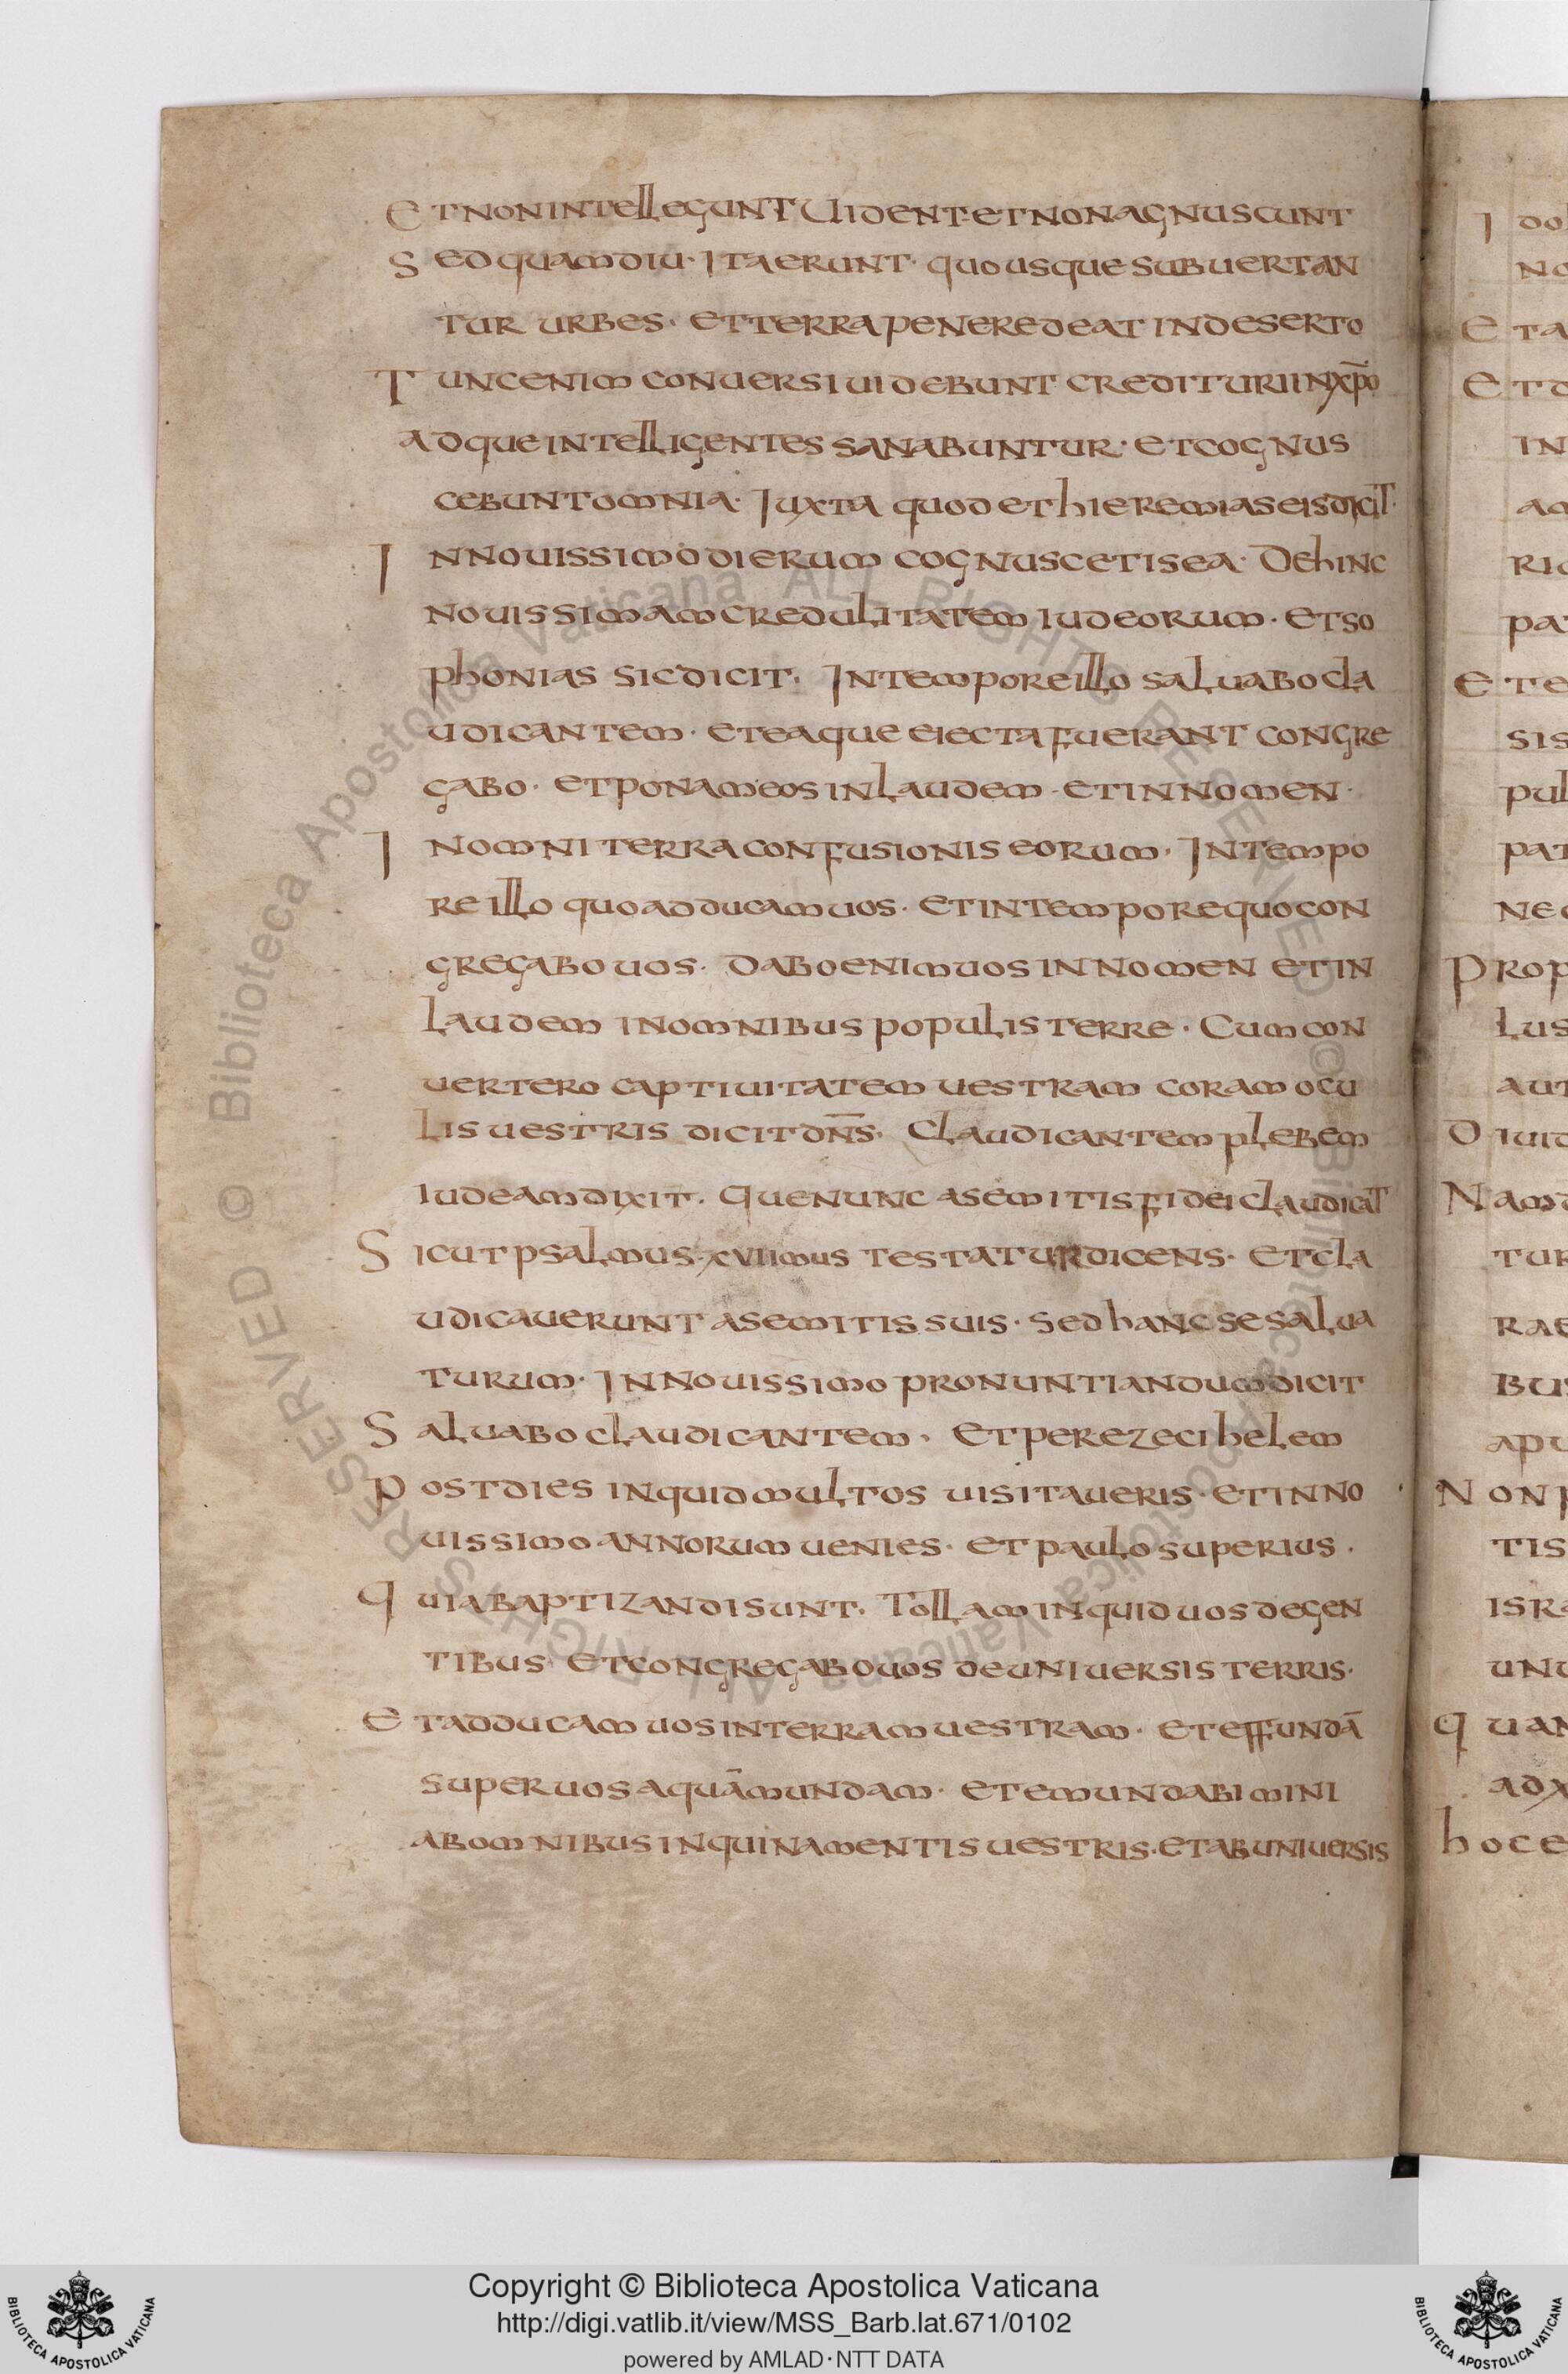 Et non intellegunt Uident et non agnuscunt
Sed quamdiu· Ita erunt· quousque subuertan
tur urbes· et terra pene redeat in deserto
Tunc enim conuersi uidebunt credituri in xp̄o
adque intelligentes sanabuntur· et cognus
cebunt omnia· Iuxta quod et hieremias eis dicit·
In nouissimo dierum cognuscetis ea· Dehinc
nouissimam credulitatem iudeorum· et so
phonias sic dicit· In tempore illo saluabo cla
udicantem· et ea que eiecta fuerant congre
gabo· et ponam eos in laudem· et in nomen·
In omni terra confusionis eorum· In tempo
re illo quo adducam uos· et in tempore quo con
gregabo uos· Dabo enim uos in nomen et in
laudem in omnibus populis terre· Cum con
uertero captiuitatem uestram coram ocu
lis uestris dicit dn̄s· Claudicantem plebem
iudeam dixit· que nunc a semitis fidei claudicat
Sicut psalmus xviimus testatur dicens· et cla
udicauerunt a semitis suis· sed hanc se salua
turum· In nouissimo pronuntiandum dicit
Saluabo claudicantem· Et per ezecihelem
Post dies inquid multos uisitaueris· et in no
uissimo annorum uenies· et paulo superius·
Quia baptizandi sunt· Tollam inquid uos de gen
tibus· et congregabo uos de uniuersis terris·
Et adducam uos in terram uestram· et effundā
super uos aquām mundam· et emundabimini
ab omnibus inquinamentis uestris· et ab uniuersis
I dol
no
E ta
E t d
in
am
ric
pa
E te
sis
pul
pat
nec
Prop
lus
aut
Diuid
Nam
tur
rae
bus
apu
Non p
tis
isra
unu
Quan
ad x
hoc e
© Biblioteca Apostolica Vaticana ALL RIGHTS RESERVED © Biblioteca Apostolica Vaticana ALL RIGHTS RESERVED
Copyright © Biblioteca Apostolica Vaticana
http://digi.vatlib.it/view/MSS_Barb.lat.671/0102
powered by AMLAD·NTT DATA
BIBLIOTECA APOSTOLICA VATICANA
BIBLIOTECA APOSTOLICA VATICANA